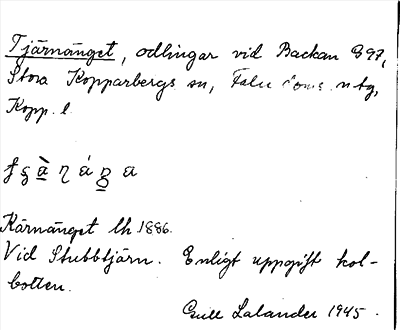 Tjärnänget, odlingar vid Backan 897,
Stora Kopparbergs sn, Falu doms. ntg,
Kopp. l.
Kärnänget lh 1886.
Vid Stubbtjärn. Enligt uppgift kol-
botten.
Gull Lalander 1945.